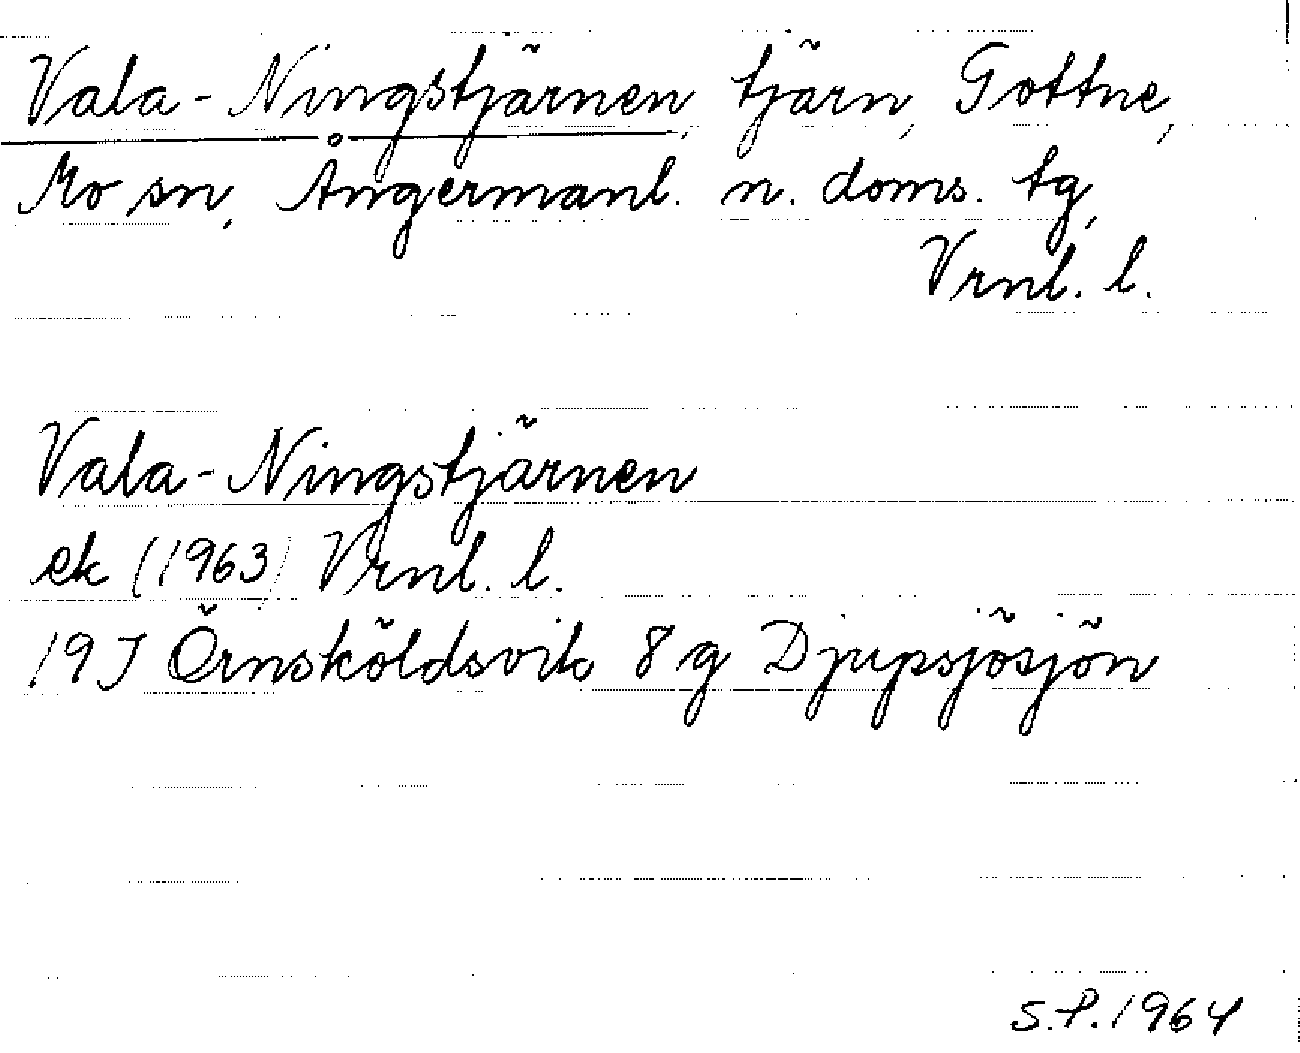 Vala-Ningstjärnen, tjärn, Gottne,
Mo sn, Ångermanl. n. doms. tg,
Vrnl. l.
Vala-Ningstjärnen
ek (1963) Vrnl. l.
19J Örnsköldsvik 8 g Djupsjösjön
S.P. 1964